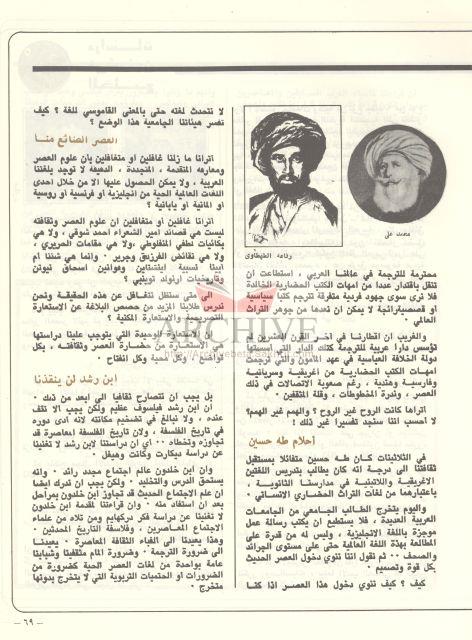 محمد علي
رفاعه الطهطاوي
محترمة للترجمة في عالمنا العربي ، استطاعت ان
تنقل باقتدار عددا من امهات الكتب الحضارية الخالدة
فلا نرى سوى جهود فردية متفرقة تترجم كتبا سياسية
او قصصية رائجة لا يمكن ان نعدها من جوهر التراث
العالمي .
والغريب ان اقطارنا في آخر القرن العشرين لم
تؤسس دارا عربية للترجمة كتلك الدار التي اسستها
دولة الخلافة العباسية في عهد المأمون والتي ترجمت
امهات الكتب الحضارية من اغريقية وسريانية
وفارسية وهندية ، رغم صعوبة الاتصالات في ذلك
العصر ، وندرة المخطوطات ، وقلة المثقفين .
اتراها كانت الروح غير الروح ؟ والهمم غير الهمم؟
لا احسب اننا سنجد تفسيرا غير ذلك !
أحلام طه حسين
في الثلاثينات كان طه حسين متفائلا بمستقبل
ثقافتنا الى درجة انه كان يطالب بتدريس اللغتين
الاغريقية واللاتينية في مدارسنا الثانوية ،
باعتبارهما من لغات التراث الحضاري الانساني .
واليوم يتخرج الطالب الجامعي من الجامعات
العربية العديدة ، فلا يستطيع ان يكتب رسالة عمل
موجزة باللغة الانجليزية ، وليس له من قدرة على
المطالعة بهذه اللغة العالمية حتى على مستوى الجرائد
والصحف ٠٠ ثم نقول اننا نوي دخول العصر الحديث
بكل قوة وتصميم .
كيف ؟ كيف ننوي دخول هذا العصر اذا كنا
لا نتحدث لغته حتى بالمعنى القاموسي للغة ؟ كيف
نفسر هيئاتنا الجامعية هذا الوضع ؟
العصر الضائع منا
اترانا ما زلنا غافلين او متغافلين بأن علوم العصر
ومعارفه المتقدمة ، المتجددة ، الدقيقة لا توجد بلغتنا
العربية ، ولا يمكن الحصول عليها الا من خلال احدى
اللغات العالمية الحية من انجليزية او فرنسية او روسية
او المانية او يابانية ؟
اترانا غافلين او متغافلين ان علوم العصر وثقافته
ليست هي قصائد امير الشعراء احمد شوقي ، ولا هي
بكائيات لطفي المنفلوطي ،ولا هي مقامات الحريري ،
ولا هي نقائض الفرزدق وجرير . وانما هي شئنا ام
ابينا نسبية اينشتاين وقوانين اسحاق نيوتن
وتاريخيات ارنولد توينبي ؟
الى متى سنظل نتغافل عن هذه الحقيقة ونحن
ندرس طلابنا المزيد من حصص البلاغة عن الاستعارة
التصريحية والاستعارة المكنية ؟
ان الاستعارة الوحيدة التي يتوجب علينا دراستها
هي الاستعارة من حضارة العصر وثقافته ، بكل
تواضع ، وكل محبة وكل انفتاح .
ARCHIVE
ابن رشد لن ينقذنا
بل يجب ان نتصارح ثقافيا الى ابعد من ذلك .
ان ابن رشد فيلسوف عظيم ولكن يجب الا نقف
عنده ، ولا نبالغ في تضخيم مكانته لأنه ادى دوره
في تاريخ الفلسفة ، ولان تاريخ الفلسفة المعاصرة قد
تجاوزه وتخطاه ٠٠ اي ان دراستنا لابن رشد لا تغنينا
عن دراسة ديكارت وكانت وهيغل .
وان ابن خلدون عالم اجتماع مجدد رائد . وانه
يستحق الدرس والتخليد . ولكن يجب ان ندرك ايضا
ان علم الاجتماع الحديث قد تجاوز ابن خلدون بمراحل
بعد ان استفاد منه . وان قراءتنا لمقدمة ابن خلدون
لا تغنينا عن دراسة فكر دركهايم ومن تلاه من علماء
الاجتماع المعاصرين ، وفلاسفة التاريخ المحدثين .
وهذا يعيدنا الى الفباء الثقافة المعاصرة . يعيدنا
الى ضرورة الترجمة . وضرورة المام مثقفينا وشبابنا
عامة بواحدة من لغات العصر الحية كضرورة من
الضرورات او الحتميات التربوية التي لا يتخرج بدونها
متخرج .
– ٦٩ –